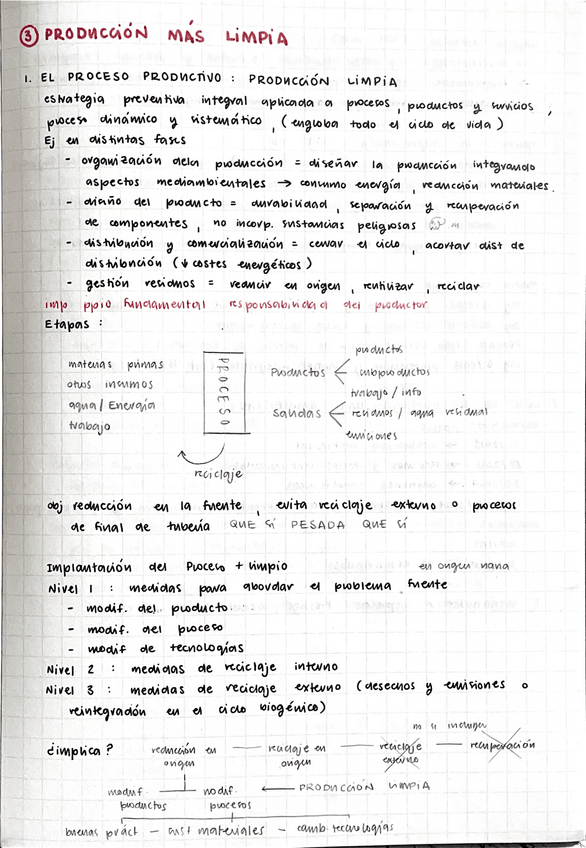 ③ PRODUCCIÓN MÁS LIMPIA
1. EL PROCESO PRODUCTIVO : PRODUCCIÓN LIMPIA
estrategia preventiva integral aplicada a procesos, productos y servicios,
proceso dinámico y sistemático, (engloba todo el ciclo de vida)
Ej en distintas fases
- organización dela producción = diseñar la producción integrando
aspectos medioambientales → consumo energía, reducción materiales.
- diseño del producto = durabilidad, separación y recuperación
de componentes, no incorp. sustancias peligrosas
- distribución y comercialización = cerrar el ciclo, acortar dist de
distribución (↓ costes energéticos)
- gestión residuos = reducir en origen, reutilizar, reciclar
imp ppio fundamental : responsabilidad del productor
Etapas :
materias primas
otros insumos
agua / Energía
trabajo
PROCESO
Productos
productos
subproductos
trabajo / info
Salidas
residuos / agua residual
emisiones
reciclaje
obj reducción en la fuente, evita reciclaje externo o procesos
de final de tubería QUE SÍ PESADA QUE SÍ
Implantación del Proceso + limpio
en origen nana
Nivel 1 : medidas para abordar el problema fuente
- modif. del producto
- modif. del proceso
- modif de tecnologías
Nivel 2 : medidas de reciclaje interno
Nivel 3 : medidas de reciclaje externo (desechos y emisiones o
reintegración en el ciclo biogénico)
¿implica?
reducción en origen — reciclaje en origen — reciclaje externo — recuperación
modif. productos
modif. procesos
← PRODUCCIÓN LIMPIA
buenas práct — sust materiales — camb tecnologías